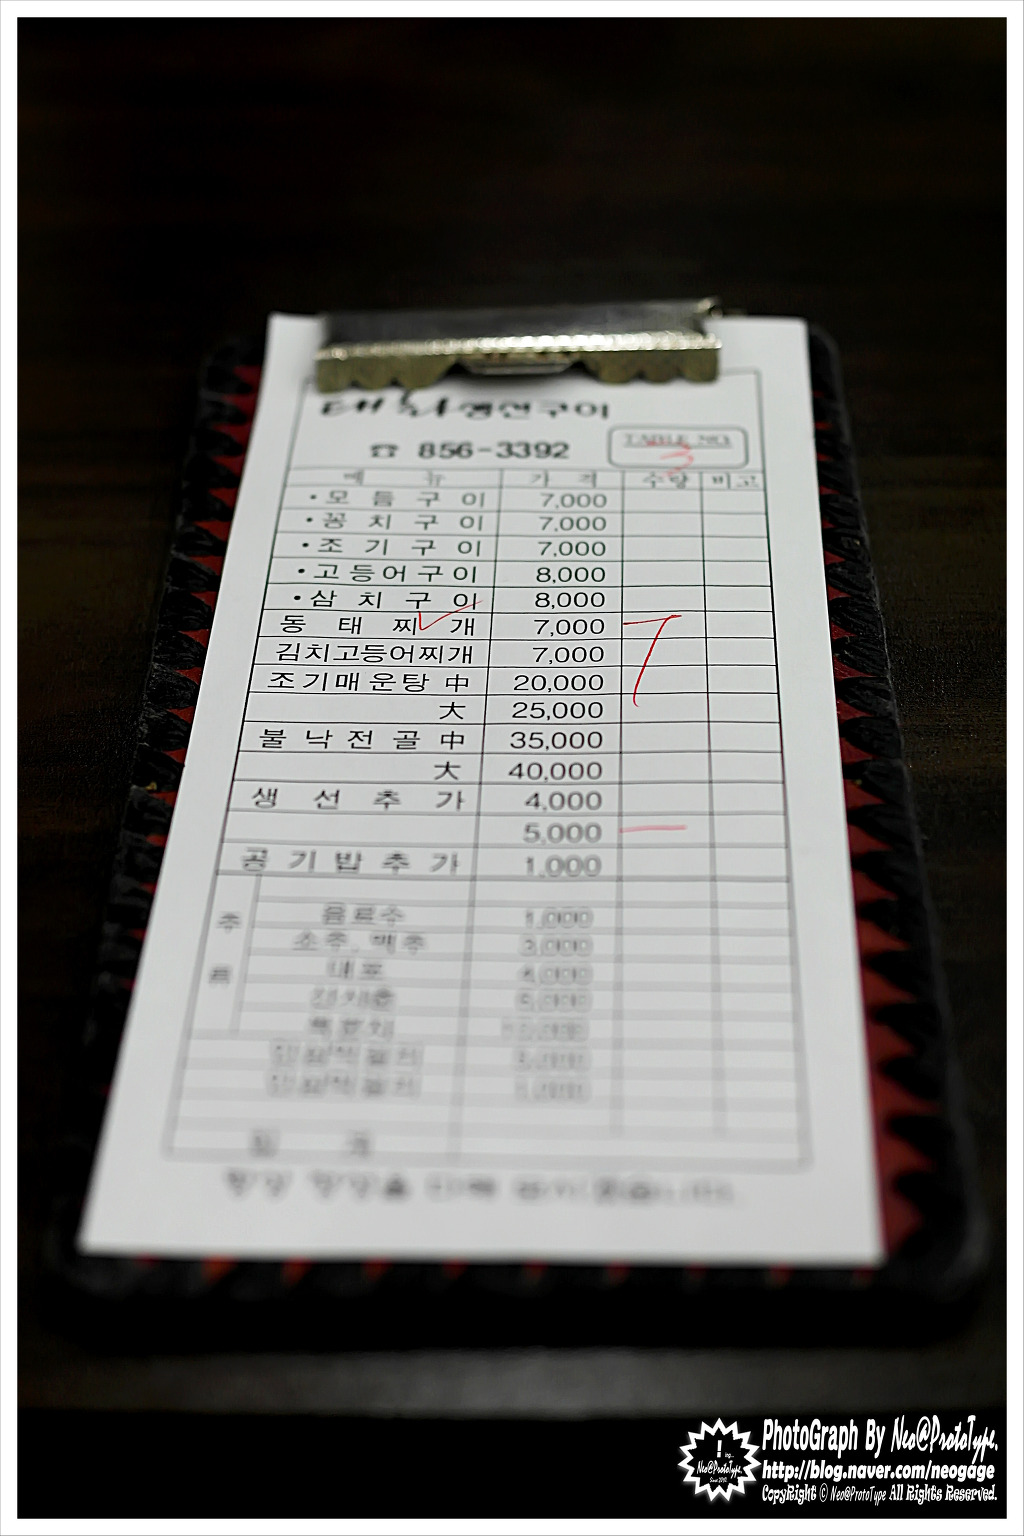 생선구이
☎ 856-3392
TABLE NO.
3
메 뉴 가 격 수량 비고
• 모 듬 구 이 7,000
• 꽁 치 구 이 7,000
• 조 기 구 이 7,000
• 고등어구이 8,000
• 삼 치 구 이 8,000
동 태 찌 개 7,000
김치고등어찌개 7,000
조기매운탕 中 20,000
大 25,000
불 낙 전 골 中 35,000
大 40,000
생 선 추 가 4,000
5,000
공 기 밥 추 가 1,000
음료수 1,000
소주, 맥주 3,000
대포 4,000
합 계
PhotoGraph By Neo@ProtoType.
http://blog.naver.com/neogage
CopyRight © Neo@ProtoType All Rights Reserved.